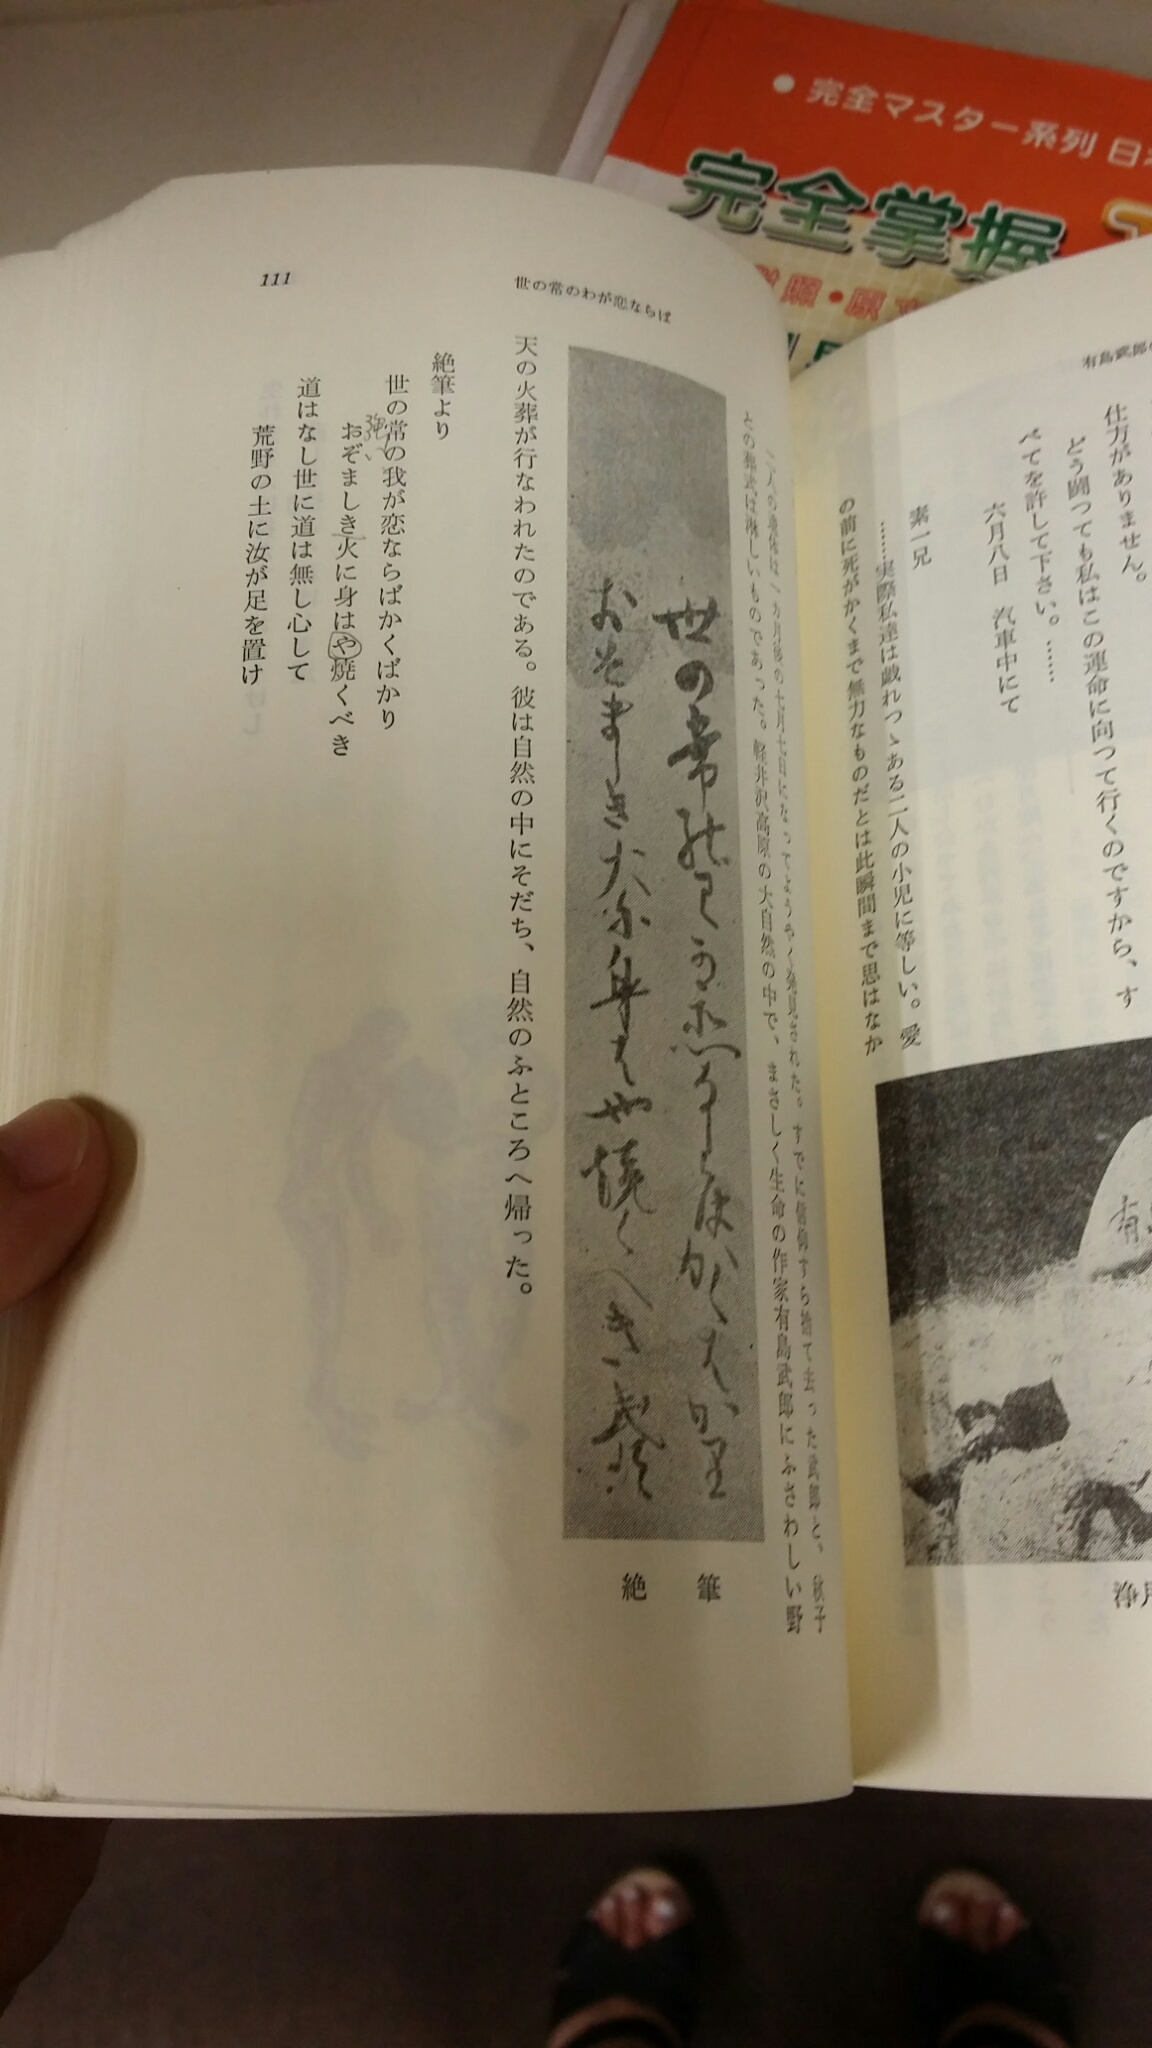 ● 完全マスター系列 日本
完全掌握
照・原
有島武郎
仕方がありません。
どう闘つても私はこの運命に向つて行くのですから、す
べてを許して下さい。……
六月八日 汽車中にて
素一兄
……実際私達は戯れつゝある二人の小児に等しい。愛
の前に死がかくまで無力なものだとは此瞬間まで思はなか
有
世の常のわが恋ならば
111
二人の遺体は一カ月後の七月七日になってようやく発見された。すでに信仰すら捨て去った武郎と、秋子
との葬式は淋しいものであった。軽井沢高原の大自然の中で、まさしく生命の作家有島武郎にふさわしい野
世の常のわが恋ならばかくばかり
おぞましき火に身はや焼くべき 武郎
絶筆
天の火葬が行なわれたのである。彼は自然の中にそだち、自然のふところへ帰った。
絶筆より
世の常の我が恋ならばかくばかり
おぞましき火に身はや焼くべき
道はなし世に道は無し心して
荒野の土に汝が足を置け